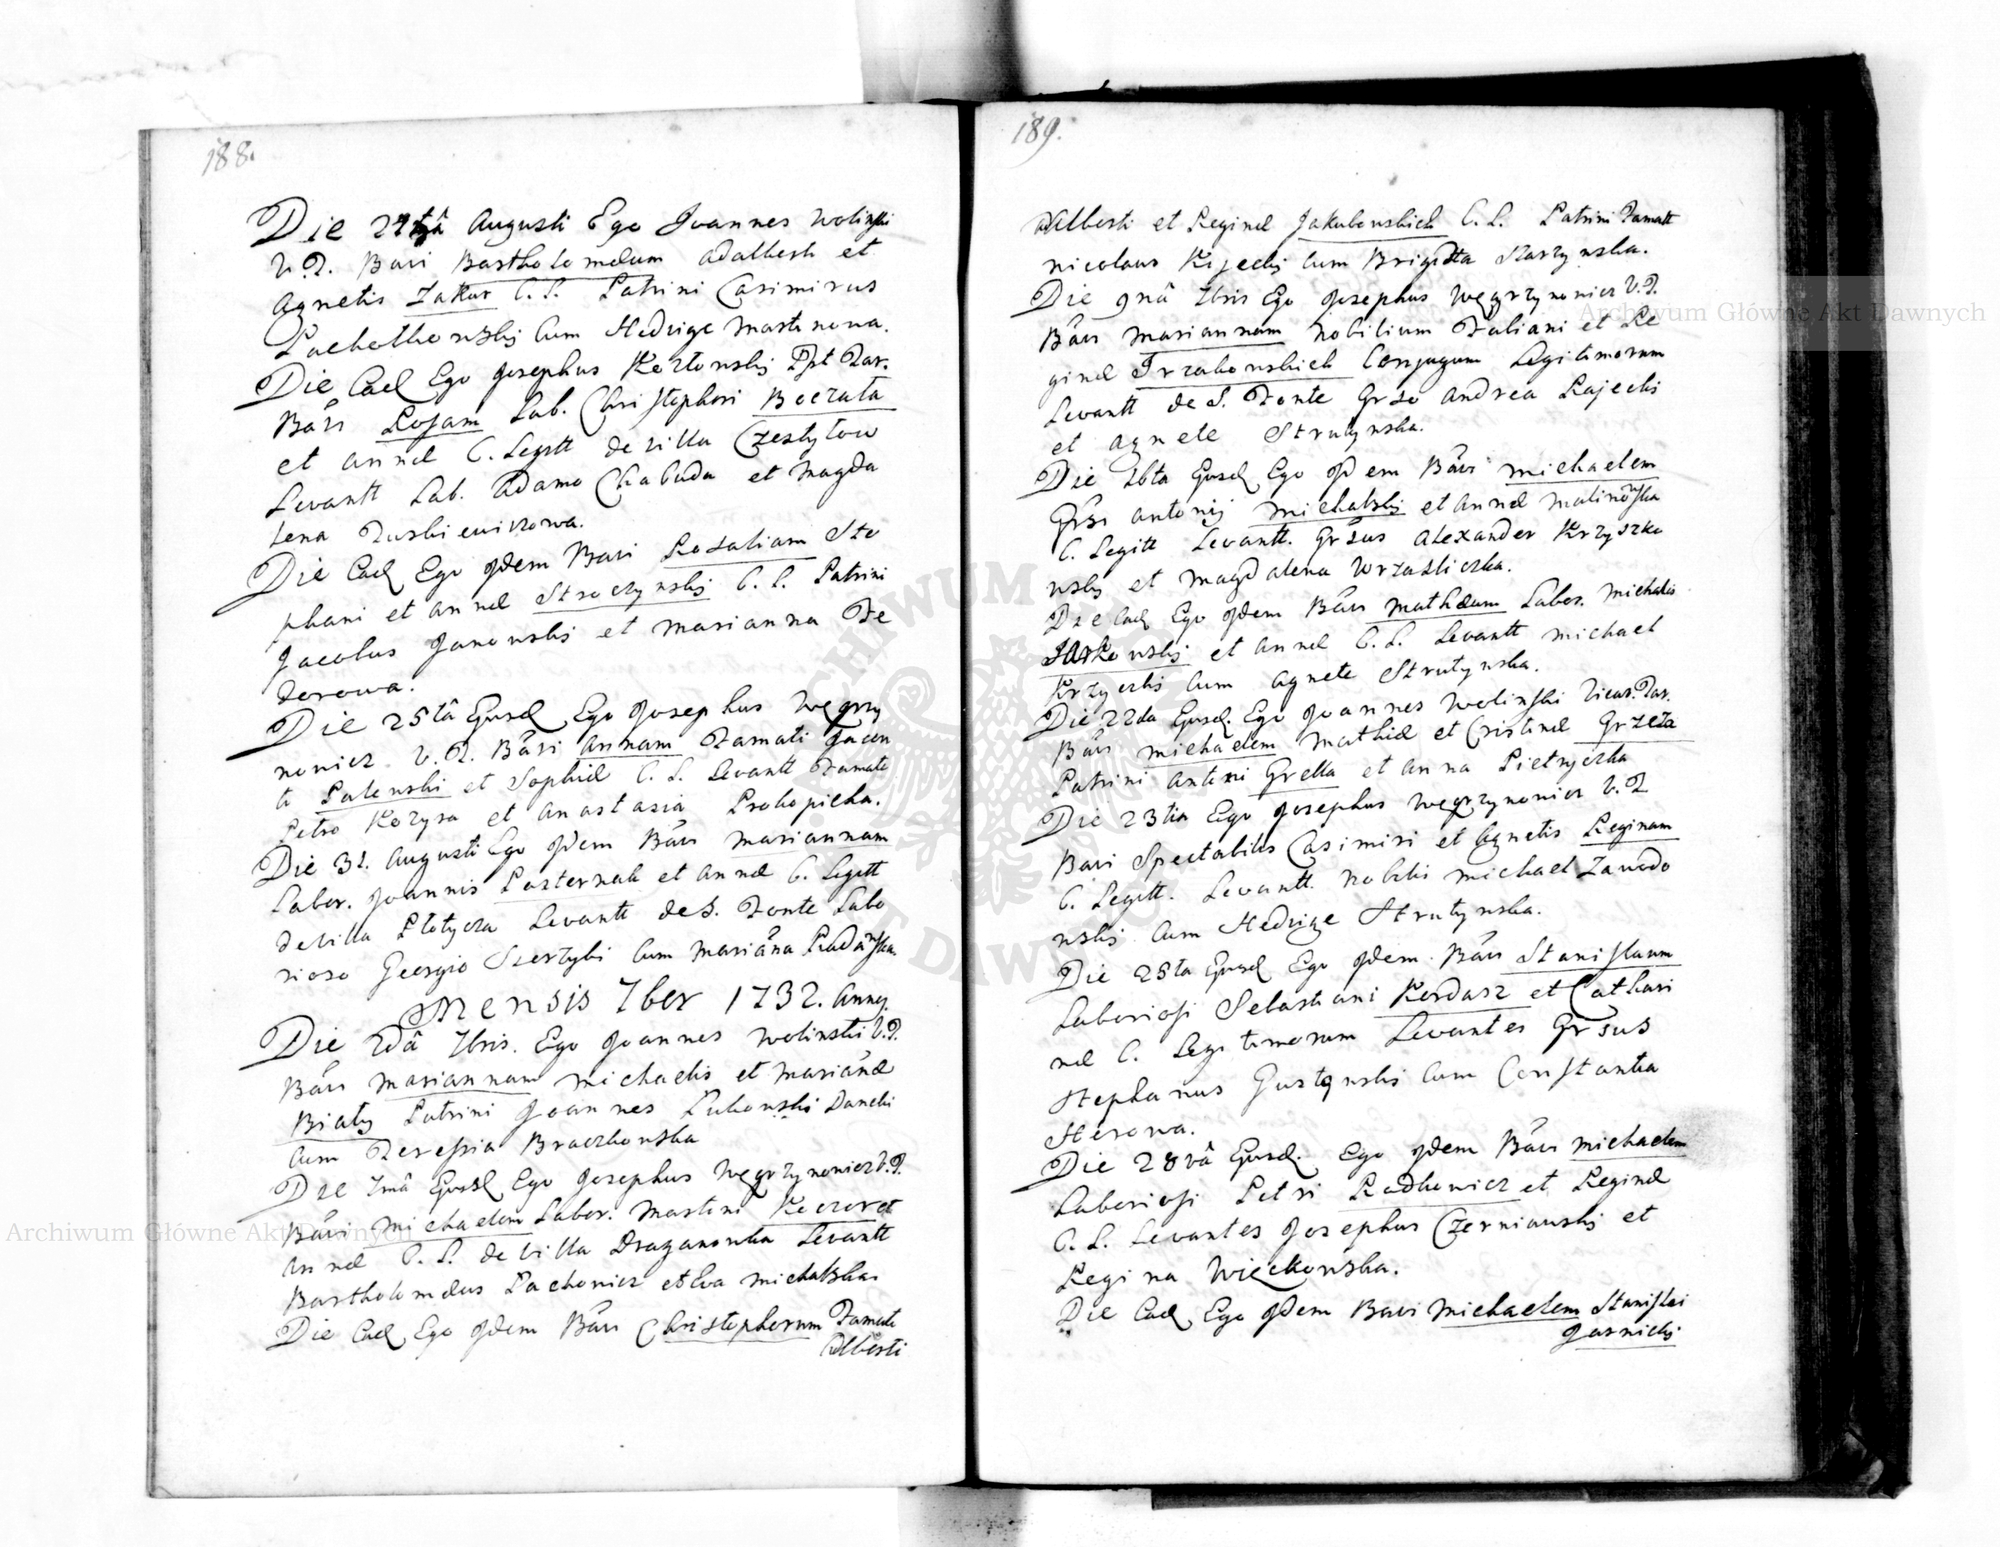 188.
Die 24tâ Augusti Ego Joannes Wolinski
V.P. Bavi Bartholomæum Adalberti et
Agnetis Zakur C. L. Patrini Casimirus
Lachothowskij cum Hedvige Martinowa.
Die Ead Ego Josephus Kozlowskij Ppt Par.
Bâvi Rosam Lab. Christophori Boczula
et Annæ C. Legitt de villa Czestyłow
Levantt Lab. Adamo Chabuda et Magda
lena Turkiewiczowa.
Die Ead Ego Idem Bavi Rosaliam Ste
phani et Annæ Stroczynskij C. L. Patrini
Jacobus Janowskij et Marianna Fe
dorowa.
Die 25tâ Ejusd Ego Josephus Węgrzy
nowicz V. P. Bâvi Annam Famati Jacen
ti Palenski et Sophiæ C. L. Levantt Famato
Petro Kozyra et Anastasia Prokopicha.
Die 31. Augusti Ego Idem Bâvi Mariannam
Labor. Joannis Pasternak et Annæ C. Legitt
de villa Płotycza Levantt de S. Fonte Labo
rioso Georgio Szertybi cum Mariâna Rudanska
Mensis 7ber 1732. Anny
Die 2dâ 7bris. Ego Joannes Wolinski V.P.
Bâvi Mariannam Michaelis et Mariânæ
Biały Patrini Joannes Łukowski Danecki
cum Teressia Braczkowska
Die 7mâ Ejusd Ego Josephus Węgrzynowicz V.P.
Bâvi Michaelem Labor. Martini Koczor et
Annæ C. L. de Villa Draganowka Levantt
Bartholomæus Pachowicz et Eva Michalska.
Die Ead Ego Idem Bâvi Christophorum Famati
Alberti
189.
Alberti et Reginæ Jakubowskich C. L. Patrini Famatt
Nicolaus Kijeckij cum Brigitta Starzynska.
Die 9nâ 7bris Ego Josephus Węgrzynowicz V.P.
Bâvi Mariannam Nobilium Fabiani et Re
ginæ Trzakowskich Conjugum Legitimorum
Levantt de S. Fonte Grso Andrea Rajecki
et Agnete Strutynska.
Die 16ta Ejusd Ego Idem Bâvi Michaelem
Grsi Antonij Michalskij et Annæ Malinowska
C. Legitt Levantt. Grsus Alexander Krzyszko
wskij et Magdalena Wrzasliczka.
Die Ead Ego Idem Bâvi Mathæum Labor. Michalis
Jarkowskij et Annæ C. L. Levantt Michael
Krzyczki cum Agnete Strutynska.
Die 22da Ejusd. Ego Joannes Wolinski Vicar. Par.
Bâvi Michaelem Mathiæ et Cristinæ Grzeza
Patrini Antoni Grella et Anna Pietryczka
Die 23tia Ego Josephus Węgrzynowicz V. P
Bavi Spectabilis Casimiri et Agnetis Reginam
C. Legitt. Levantt. Nobilis Michael Zawado
wskij cum Hedvige Strutynska.
Die 25ta Ejusd Ego Idem Bâvi Stanislaum
Laboriosi Sebastiani Kordasz et Cathari
næ C. Legitimorum Levantes Grsus
Stephanus Gustynskij cum Constantia
Sterowa.
Die 28vâ Ejusd. Ego Idem Bâvi Michaelem
Laboriosi Petri Radkowicz et Reginæ
C. L. Levantes Josephus Czerniawskij et
Regina Więckowska.
Die Ead Ego Idem Bavi Michaelem Stanislai
Jasnickij
Archiwum Główne Akt Dawnych
Archiwum Główne Akt Dawnych